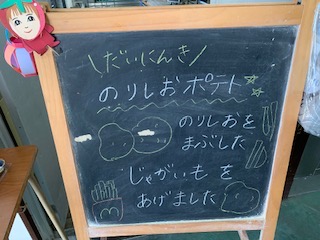 \だいにんき/
のりしおポテト
のりしおを
まぶした
じゃがいもを
あげました